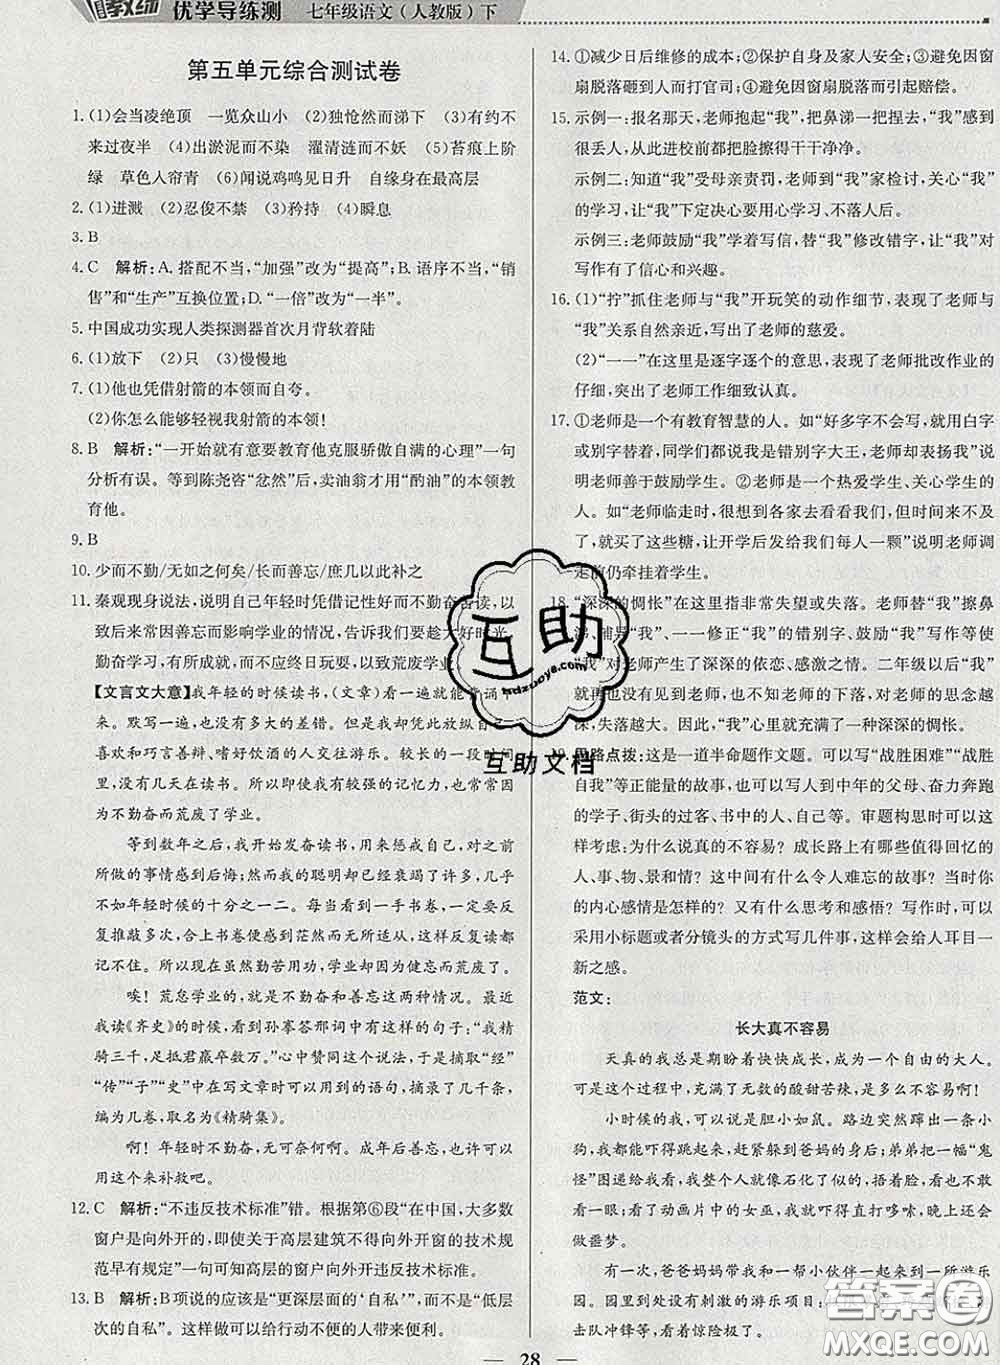 教练
优学导练测 七年级语文（人教版）下
第五单元综合测试卷
1. (1)会当凌绝顶 一览众山小 (2)独怆然而涕下 (3)有约不
来过夜半 (4)出淤泥而不染 濯清涟而不妖 (5)苔痕上阶
绿 草色入帘青 (6)闻说鸡鸣见日升 自缘身在最高层
2. (1)迸溅 (2)忍俊不禁 (3)矜持 (4)瞬息
3. B
4. C 解析：A. 搭配不当，“加强”改为“提高”；B. 语序不当，“销
售”和“生产”互换位置；D. “一倍”改为“一半”。
5. 中国成功实现人类探测器首次月背软着陆
6. (1)放下 (2)只 (3)慢慢地
7. (1)他也凭借射箭的本领而自夸。
(2)你怎么能够轻视我射箭的本领！
8. B 解析：“一开始就有意要教育他克服骄傲自满的心理”一句
分析有误。等到陈尧咨“忿然”时，卖油翁才用“酌油”的本领教
育他。
9. B
10. 少而不勤/无如之何矣/长而善忘/庶几以此补之
11. 秦观现身说法，说明自己年轻时凭借记性好而不勤奋苦读，以
致后来常因善忘而影响学业的情况，告诉我们要趁大好时光，
勤奋学习，有所成就，而不应终日玩耍，以致荒废学业
【文言文大意】我年轻的时候读书，(文章)看一遍就能背诵
来。默写一遍，也没有多大的差错。但我仅凭此却放纵自己，
喜欢和巧言善辩、嗜好饮酒的人交往游乐。较长的一段时间
里，几乎没有几天在读书。所以虽然有较强的记忆力，也常常
因为不勤奋而荒废了学业。
等到数年之后，开始发奋读书，用来惩戒自己，对以前所
做的事情感到后悔；然而我的聪明却已经衰耗了许多，几乎
不如年轻时候的十分之一二。每当看到一手书卷，一定要反
复推敲多次，合上书卷便感到茫然而无所获，这样反复读却
记不住。所以现在虽然勤劳苦用，学业却因为健忘而荒废了。
唉！荒怠学业的，就是不勤奋和善忘这两种情况。最近
我读《齐史》的时候，看到孙搴答邢词中有这样的句子：“我
精骑三千，足抵君羸卒数万。”心中赞同这个说法，于是摘取“经”
“传”“子”“史”中在写文章时可以用到的语句，摘录了几千条，
编为几卷，取名为《精骑集》。
啊！年轻时不勤奋，无可奈何啊。成年后善忘，可以
用这个来补救吧。
12. C 解析：“不违反技术标准”错。根据第⑥段“在中国，大多数
窗户是向外开的，即使关于高层建筑不得向外开窗的技术规
范早有规定”一句可知高层的窗户向外开违反技术标准。
13. B 解析：B项说的应该是“更深层面的‘自私’”，而不是“低层
次的自私”。这样做可以给行动不便的人带来便利。
14. ①减少日后维修的成本；②保护自身及家人安全；③避免因窗
扇脱落砸到人或打官司；④避免因窗扇脱落而引起赔偿。
15. 示例一：报名那天，老师抱起“我”，把鼻涕一把捏去，“我”感到
很丢人，从此进校前都把脸擦得干干净净。
示例二：知道“我”受母亲责罚，老师到“我”家检讨，关心“我”
的学习，让“我”下定决心要用心学习、不落人后。
示例三：老师鼓励“我”学着写信，替“我”修改错字，让“我”对
写作有了信心和兴趣。
16. (1)“拧”抓住老师与“我”开玩笑的动作细节，表现了老师与
“我”关系自然亲近，写出了老师的慈爱。
(2)“一一”在这里是逐字逐个的意思，表现了老师批改作业的
仔细，突出了老师工作细致认真。
17. ①老师是一个有教育智慧的人。如“好多字不会写，就用白字
或错别字代替，同学们都笑我是错别字大王，老师却表扬我”说
明老师善于鼓励学生。②老师是一个热爱学生、关心学生的
人。如“老师临走时，很想到各家去看看我们，但是时间不够
了，就买了这些糖，让开学后发给我们每人一颗”说明老师调
走前仍牵挂着学生。
18. “深深的惆怅”在这里指非常失望或失落。老师替“我”擦鼻
涕、辅导“我”、一一修正“我”的错别字、鼓励“我”写作等使
“我”对老师产生了深深的依恋、感激之情。二年级以后“我”
就再也没有见到老师，也不知老师的下落，对老师的思念越
深，失落越大。因此，“我”心里就充满了一种深深的惆怅。
19. 思路点拨：这是一道半命题作文题。可以写“战胜困难”“战胜
自我”等正能量的故事，可以写人到中年的父母、奋力奔跑
的学子、街头的过客、书中的人、自己等。审题构思时可以这
样考虑：为什么说真的不容易？成长路上有哪些值得回忆的
人、事、物、景和情？这之中有什么令人难忘的故事？当时你
的内心感情是怎样的？又有什么思考和感悟？写作时，可以
采用小标题或者分镜头的方式写几件事，这会给人耳目一
新之感。
范文：
长大真不容易
天真的我总是期盼着快快成长，成为一个自由的大人。
可是这个过程中，充满了无数的酸甜苦辣，是多么不容易啊！
小时候的我，可以说是胆小如鼠。路边突然蹿出一条小
狗，我都能被吓得跳起来，赶紧躲到爸妈的身后；弟弟把一幅“鬼
怪”图递到我面前，我整个人就像石化了一样，愣在那里
一动不动；看了动画片中的女巫，我就吓得直打哆嗦，晚上还会
做噩梦。
有一次，爸爸妈妈带着我和一帮小伙伴们一起去一所游乐
园。园里到处设有刺激的游乐项目：
击队冲锋等，看着都惊险极了。
28
互助
hdzuoye.com
互助文档
答案圈
MXQE.COM